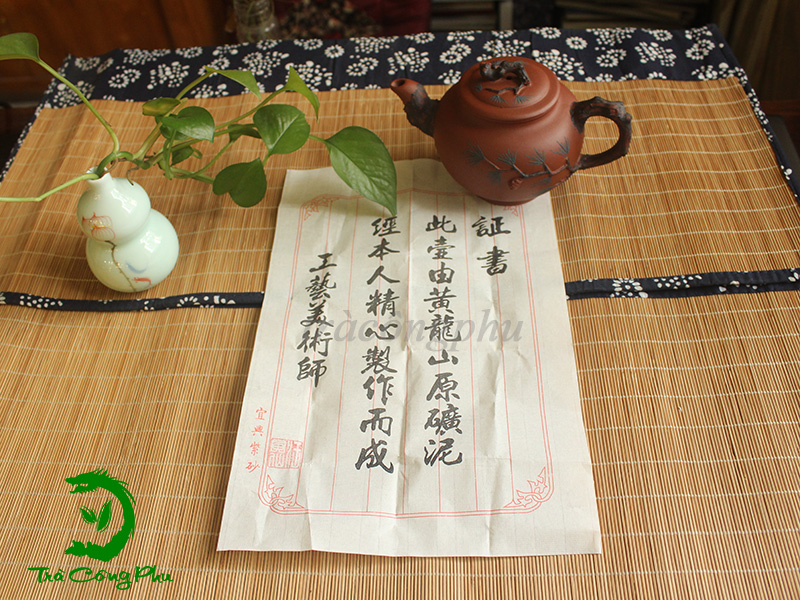 証書
此壺由黃龍山原礦泥
經本人精心製作而成
工藝美術師
宜興紫砂
Tràcôngphu
Trà Công Phu